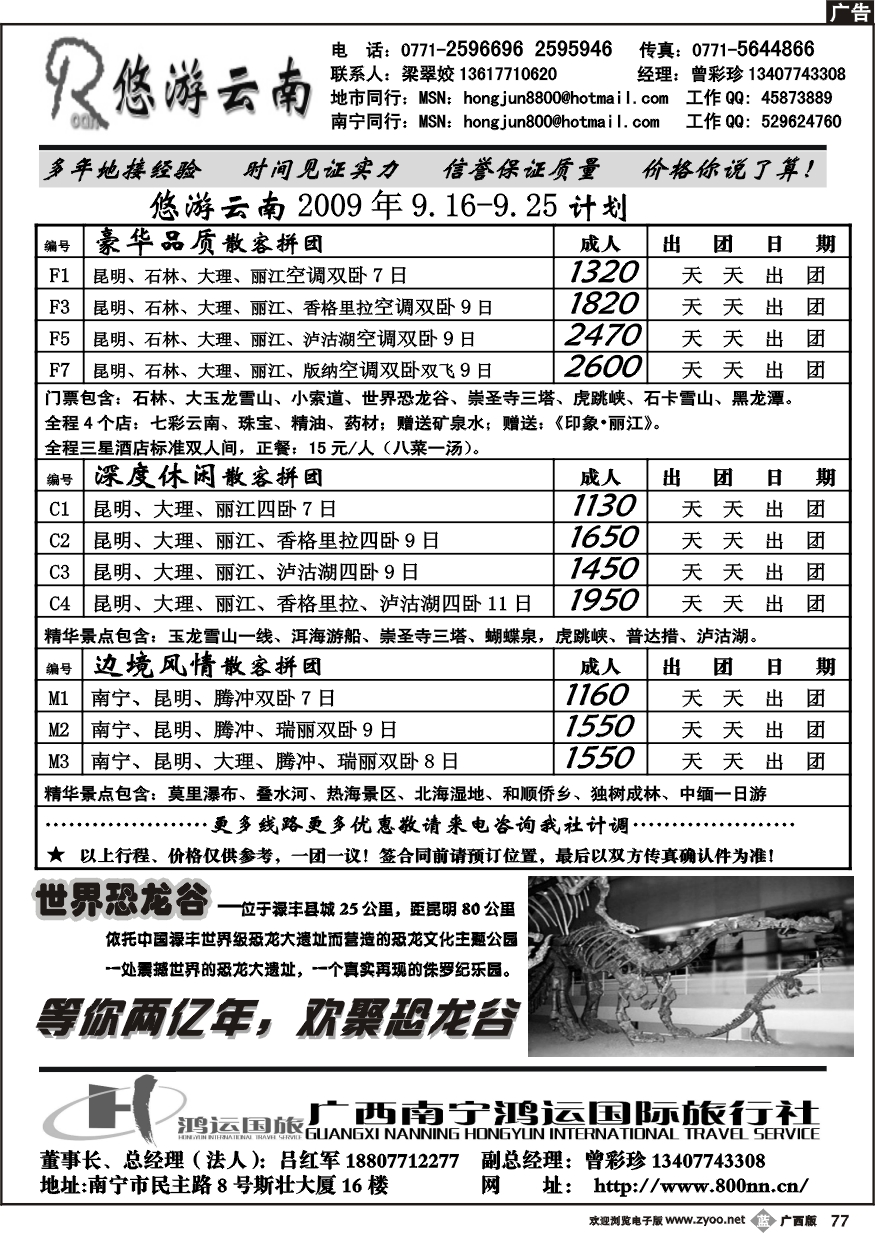 广告
Roan 悠游云南
电 话：0771-2596696 2595946 传真：0771-5644866
联系人：梁翠姣 13617710620 经理：曾彩珍 13407743308
地市同行：MSN：hongjun8800@hotmail.com 工作 QQ：45873889
南宁同行：MSN：hongjun800@hotmail.com 工作 QQ：529624760
多年地接经验 时间见证实力 信誉保证质量 价格你说了算！
悠游云南 2009 年 9.16-9.25 计划
编号 豪华品质散客拼团 成人 出 团 日 期
F1 昆明、石林、大理、丽江空调双卧 7 日 1320 天 天 出 团
F3 昆明、石林、大理、丽江、香格里拉空调双卧 9 日 1820 天 天 出 团
F5 昆明、石林、大理、丽江、泸沽湖空调双卧 9 日 2470 天 天 出 团
F7 昆明、石林、大理、丽江、版纳空调双卧双飞 9 日 2600 天 天 出 团
门票包含：石林、大玉龙雪山、小索道、世界恐龙谷、崇圣寺三塔、虎跳峡、石卡雪山、黑龙潭。
全程 4 个店：七彩云南、珠宝、精油、药材；赠送矿泉水；赠送：《印象•丽江》。
全程三星酒店标准双人间，正餐：15 元/人（八菜一汤）。
编号 深度休闲散客拼团 成人 出 团 日 期
C1 昆明、大理、丽江四卧 7 日 1130 天 天 出 团
C2 昆明、大理、丽江、香格里拉四卧 9 日 1650 天 天 出 团
C3 昆明、大理、丽江、泸沽湖四卧 9 日 1450 天 天 出 团
C4 昆明、大理、丽江、香格里拉、泸沽湖四卧 11 日 1950 天 天 出 团
精华景点包含：玉龙雪山一线、洱海游船、崇圣寺三塔、蝴蝶泉，虎跳峡、普达措、泸沽湖。
编号 边境风情散客拼团 成人 出 团 日 期
M1 南宁、昆明、腾冲双卧 7 日 1160 天 天 出 团
M2 南宁、昆明、腾冲、瑞丽双卧 9 日 1550 天 天 出 团
M3 南宁、昆明、大理、腾冲、瑞丽双卧 8 日 1550 天 天 出 团
精华景点包含：莫里瀑布、叠水河、热海景区、北海湿地、和顺侨乡、独树成林、中缅一日游
····················更多线路更多优惠敬请来电咨询我社计调····················
★ 以上行程、价格仅供参考，一团一议！签合同前请预订位置，最后以双方传真确认件为准！
世界恐龙谷 —位于禄丰县城 25 公里，距昆明 80 公里
依托中国禄丰世界级恐龙大遗址而营造的恐龙文化主题公园
一处震撼世界的恐龙大遗址，一个真实再现的侏罗纪乐园。
等你两亿年，欢聚恐龙谷
鸿运国旅 广西南宁鸿运国际旅行社
HONGYUN INTERNATIONAL TRAVEL SERVICE GUANGXI NANNING HONGYUN INTERNATIONAL TRAVEL SERVICE
董事长、总经理（法人）：吕红军 18807712277 副总经理：曾彩珍 13407743308
地址:南宁市民主路 8 号斯壮大厦 16 楼 网 址： http://www.800nn.cn/
欢迎浏览电子版 www.zyoo.net 蓝 广西版 77